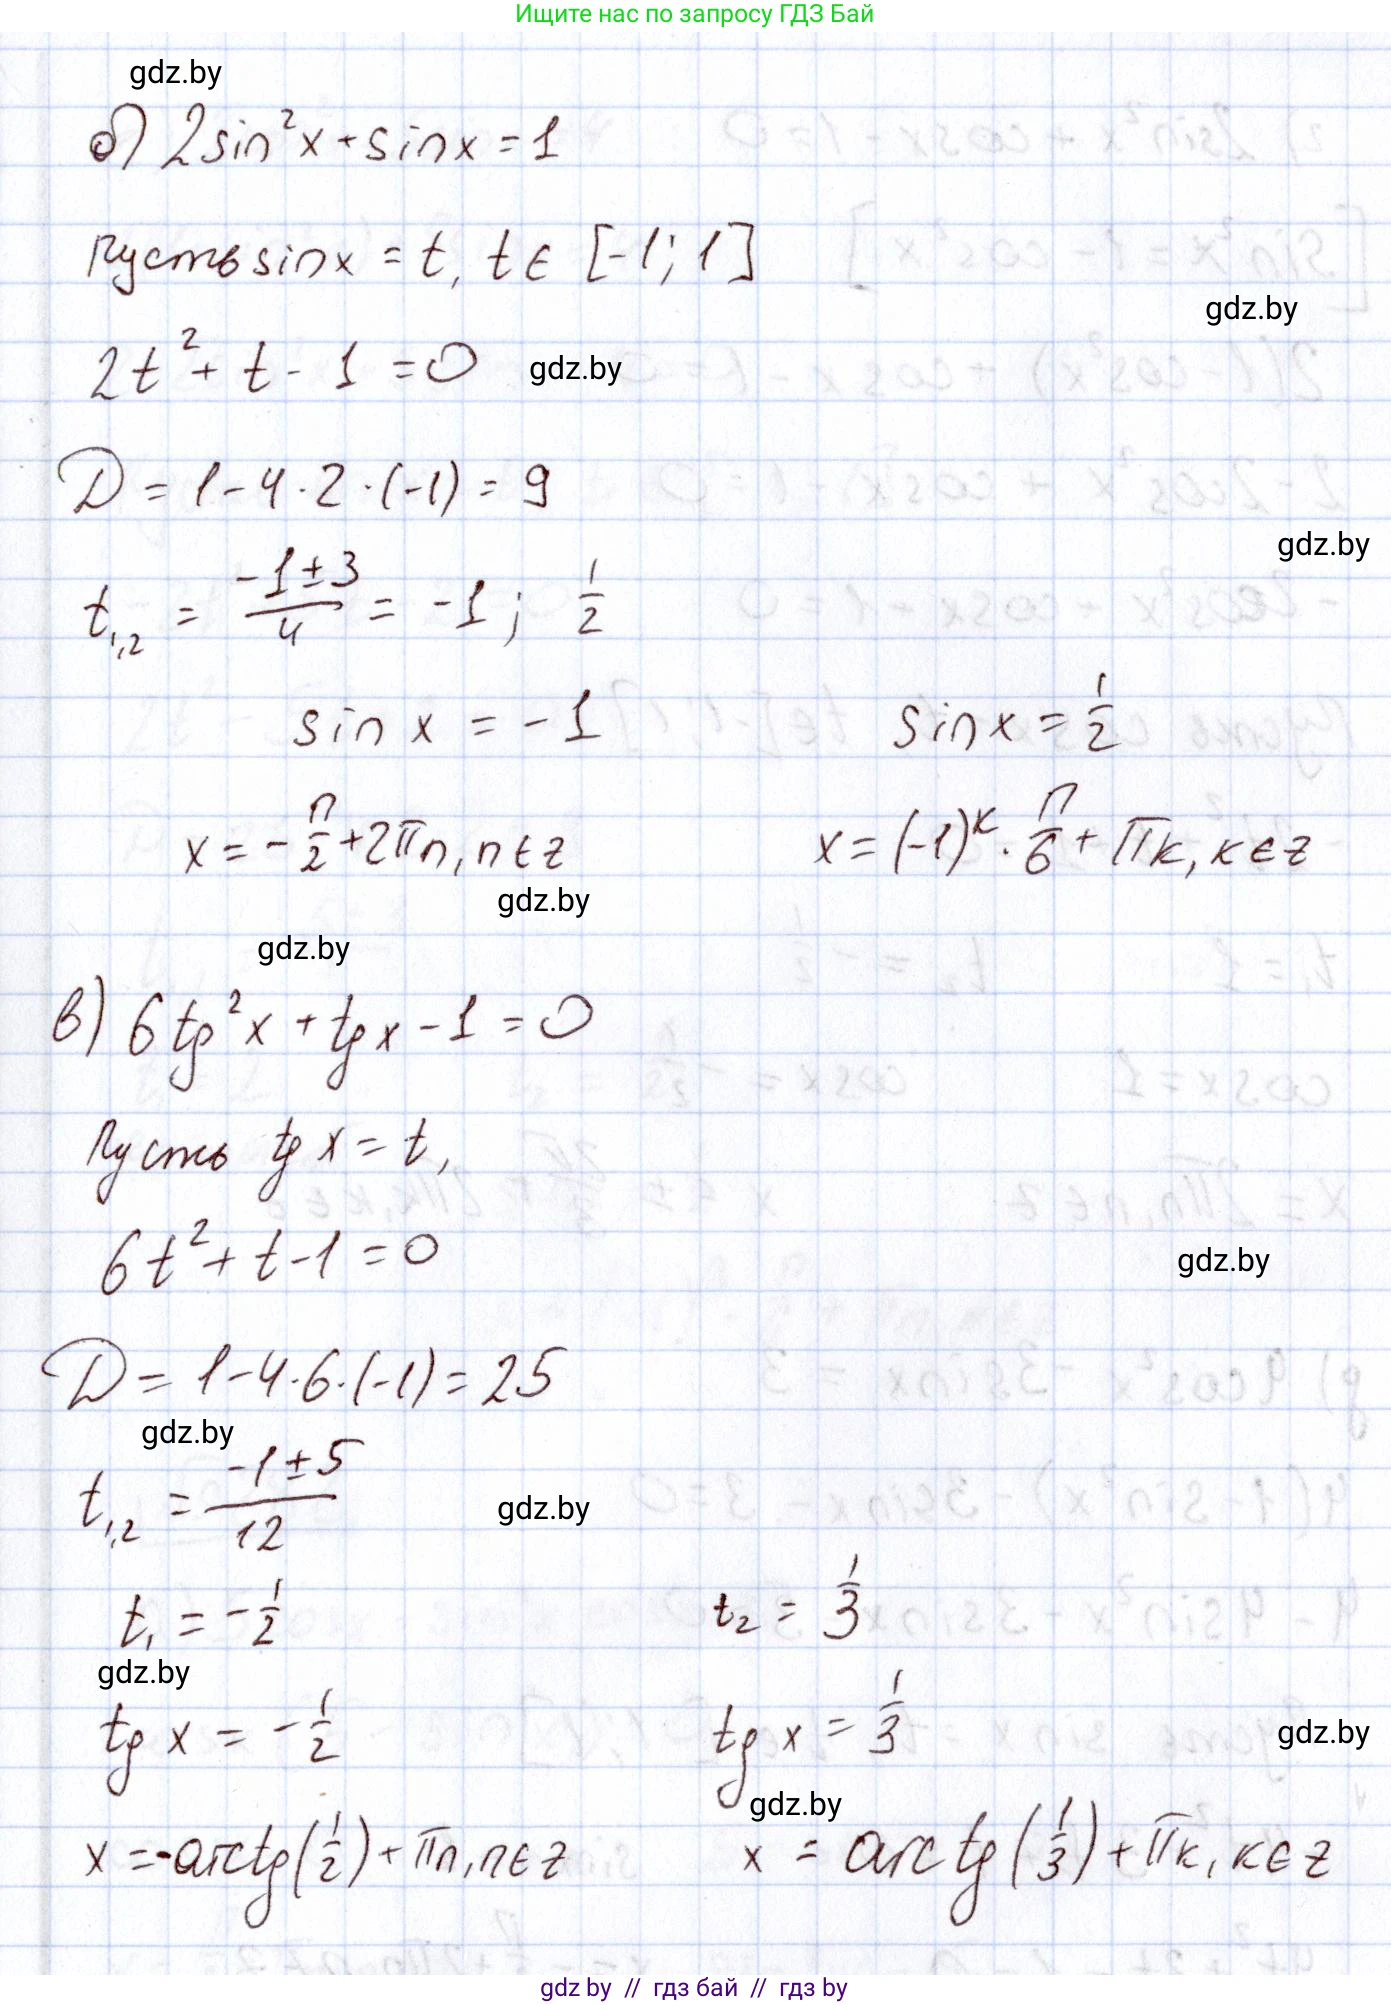 Ищите нас по запросу ГДЗ Бай
gdz.by
б) 2sin²x + sinx = 1
Пусть sinx = t, t ∈ [-1; 1]
gdz.by
2t² + t - 1 = 0
gdz.by
D = 1 - 4 · 2 · (-1) = 9
gdz.by
t₁,₂ = (-1 ± 3)/4 = -1; 1/2
sin x = -1 sin x = 1/2
x = -π/2 + 2πn, n ∈ z x = (-1)^k · π/6 + πk, k ∈ z
gdz.by
gdz.by
в) 6tg²x + tgx - 1 = 0
Пусть tg x = t,
6t² + t - 1 = 0
gdz.by
D = 1 - 4 · 6 · (-1) = 25
gdz.by
t₁,₂ = (-1 ± 5)/12
gdz.by
t₁ = -1/2 t₂ = 1/3
gdz.by
tg x = -1/2 tg x = 1/3
gdz.by
gdz.by
x = -arctg(1/2) + πn, n ∈ z x = arctg(1/3) + πk, k ∈ z
gdz by // гдз бай // гдз by